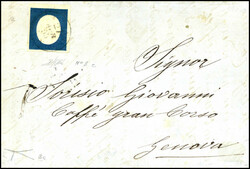 Signor
Torisio Giovanni
Caffè gran Corso
Genova